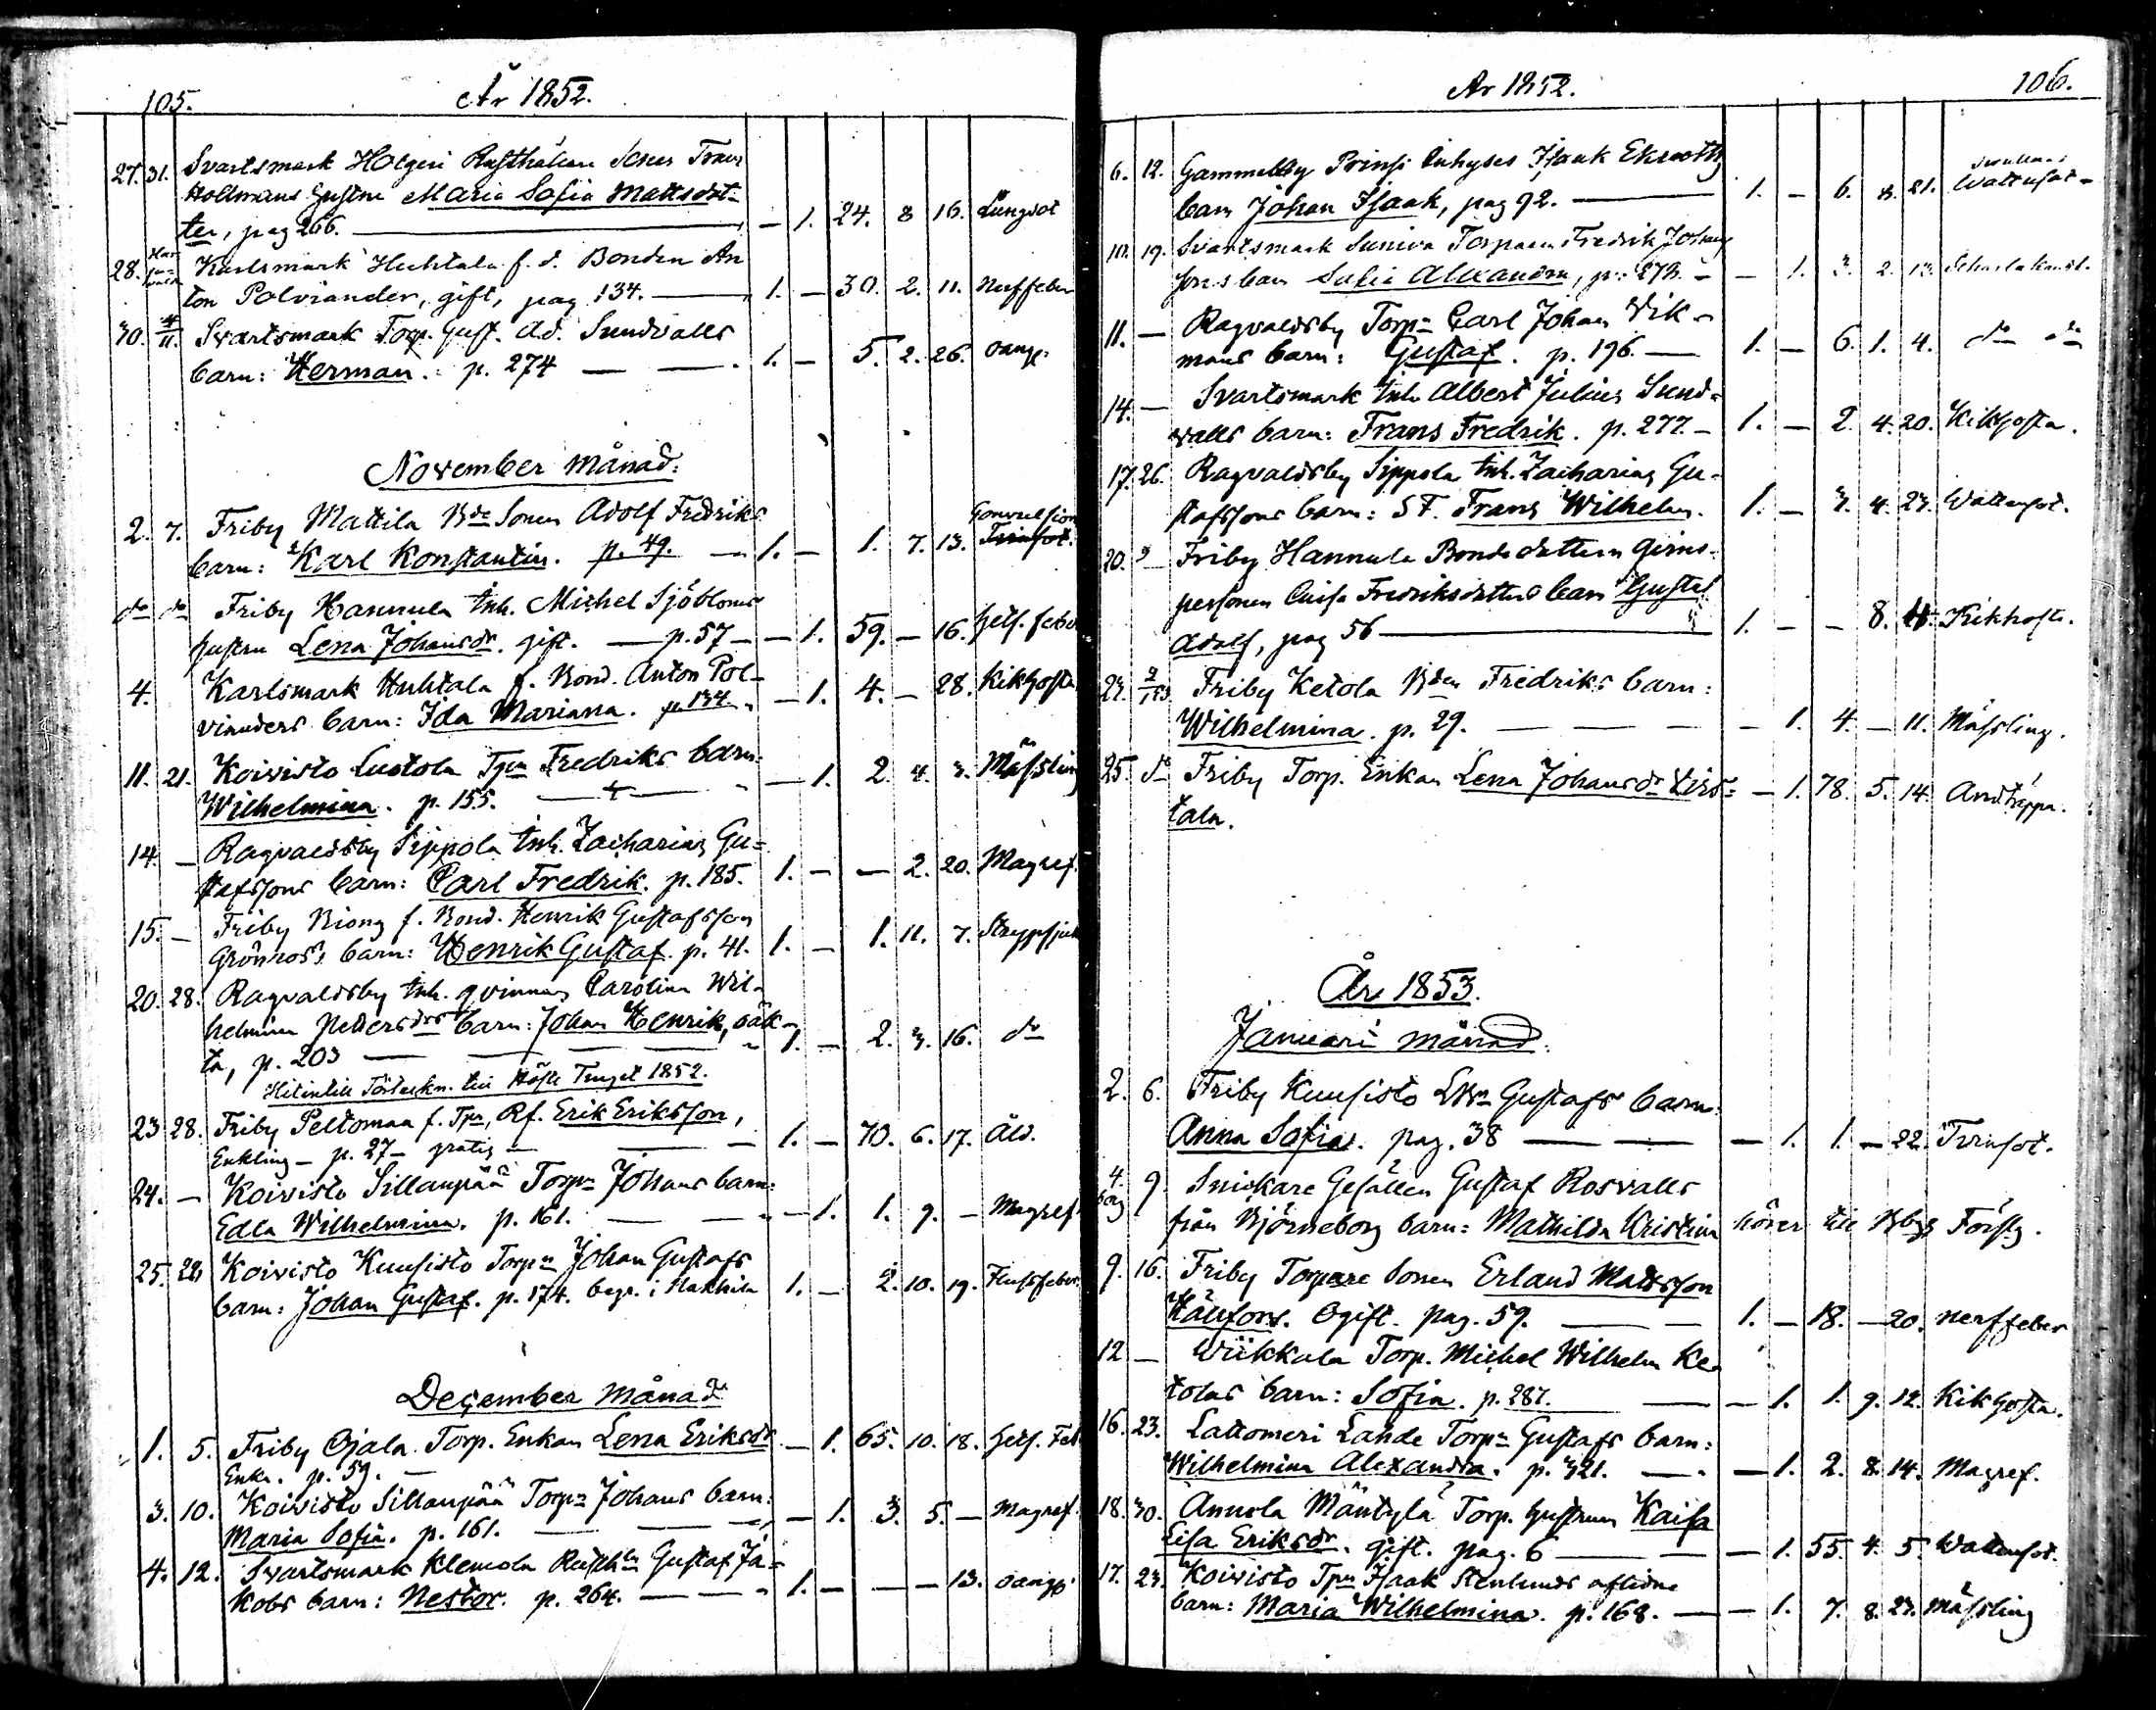 105. År 1852.
27. 31. Svartsmark Holgeri Rusthållare Sonen Frans
Hollméns hustru Maria Sofia Mattsdot-
ter, pag 266. — 1. 24. 8 16. Lungsot
28. Karlsmark Huhtala f. d. Bonden An
ton Polviander, gift, pag 134. 1. — 30. 2. 11. Nerffeber
30. 4/11. Svartsmark Torp. Gust. Ad. Sundvalls
barn: Herman. p. 274 1. — 5. 2. 26. oangf.
November månad.
2. 7. Friby Mattila Bde Sonen Adolf Fredriks Convulsion
barn: Karl Konstantin. p. 49. — 1. — 1. 7. 13.
do do Friby Hannula Inh. Michel Sjöbloms
hustru Lena Johansdr. gift. — p. 57 — — 1. 59. — 16. Hetf. feber
4. Karlsmark Huhtala f. Bond. Anton Pol-
vianders barn: Ida Mariana. p. 134. — 1. 4. — 28. Kikhosta
11. 21. Koivisto Luotola Tprn Fredriks barn:
Wilhelmina. p. 155. — 1. 2. 4. 3. Mässling
14. — Ragvaldsby Sippola Inh. Zacharias Gu-
stafssons barn: Carl Fredrik. p. 185. 1. — — 2. 20. Magref.
15. — Friby Biong f. Bond. Henrik Gustafsson
Grönroos barn: Henrik Gustaf. p. 41. 1. — 1. 11. 7. Strypsjuk
20. 28. Ragvaldsby Inh. qvinnas Carolina Wil-
helmina Pettersdrs barn: Johan Henrik, oäk-
ta, p. 203 1. — 2. 3. 16. do
Hitintill Förteckn. till Höste Tinget 1852.
23 28. Friby Peltomaa f. Tpr, Rf. Erik Eriksson,
Enkling — p. 27 — gratis — 1. — 70. 6. 17. Åld.
24. — Koivisto Sillanpää Torprn Johans barn:
Edla Wilhelmina. p. 161. — 1. 1. 9. — Magref
25. 28 Koivisto Kuusisto Torprn Johan Gustafs
barn: Johan Gustaf. p. 174. begr. i Nakkila 1. — 2. 10. 19. Flussfeber.
December månad
1. 5. Friby Ojala Torp. Enkan Lena Eriksdr — 1. 65. 10. 18. Hetf. Feb.
Enka. p. 59.
3. 10. Koivisto Sillanpää Torprn Johans barn:
Maria Sofia. p. 161. — 1. 3. 5. — Magref.
4. 12. Svartsmark Klemola Rusth. Gustaf Ja-
kobs barn: Nestor. p. 264. 1. — — — 13. oangf.
År 1852. 106.
6. 12. Gammelby Prinsi Inhyses Isaak Ekroths
barn Johan Isaak, pag 92. 1. — 6. 8. 21. Wattusot
10. 19. Svartsmark Suniva Torparen Fredrik Johans
sons barn Sofia Alexandra, p. 273. — 1. 3. 2. 13.
11. — Ragvaldsby Torprn Carl Johan Wik-
mans barn: Gustaf. p. 196. — 1. — 6. 1. 4. do do
14. — Svartsmark Inh. Albert Julius Sund-
valls barn: Frans Fredrik. p. 277. — 1. — 2. 4. 20. Kikhosta.
17. 26. Ragvaldsby Sippola Inh. Zacharias Gu-
stafssons barn: S F. Frans Wilhelm. 1. — 3. 4. 23. Wattusot.
20. Friby Hannula Bonde dottern qvins-
personen Caisa Fredriksdotters barn Gustaf
Adolf, pag 56 1. — — 8. Kikhosta.
23. 2/1 53 Friby Ketola Bden Fredriks barn:
Wilhelmina. p. 29. — 1. 4. — 11. Mässling.
25. do Friby Torp. Enkan Lena Johansdr
tala. — 1. 78. 5. 14. Andtäppa.
År 1853.
Januari månad.
2. 6. Friby Kuusisto Gustafs barn
Anna Sofia. pag. 38 — 1. 1. — 22. Tvinsot.
4. 9. Snickare Gesällen Gustaf Rosvalls
från Björneborg barn: Mathilda Kristina hörer till Bbgs Förs:g.
9. 16. Friby Torpare Sonen Erland Mattsson
Hällfors. Ogift. pag. 59. 1. — 18. — 20. nerffeber
12 — Wiikkala Torp. Michel Wilhelm Ke-
tolas barn: Sofia. p. 287. — 1. 1. 9. 12. Kikhosta.
16. 23. Lattomeri Lahde Torprn Gustafs barn:
Wilhelmina Alexandra. p. 321. — 1. 2. 8. 14. Magref.
18. 30. Annola Mäntylä Torp. hustrun Kaisa
Lisa Eriksdr. gift. pag. 6 — 1. 55. 4. 5. Wattusot.
17. 23. Koivisto Tprn Isaak Stenlunds aflidne
barn: Maria Wilhelmina. p. 168. — 1. 7. 8. 23. mässling